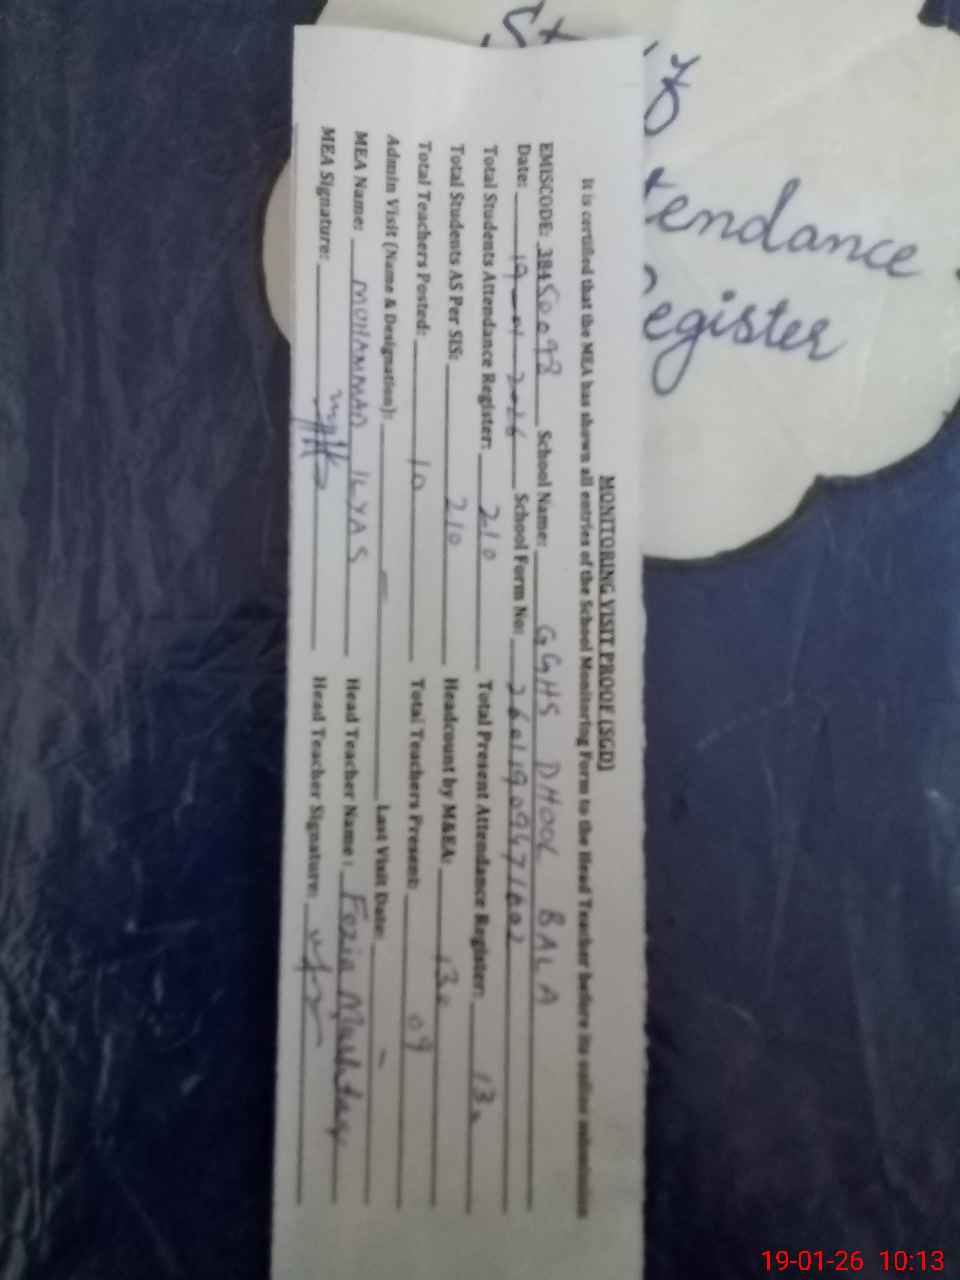 Attendance
Register
MONITORING VISIT PROOF (SGD)
It is certified that the MEA has shown all entries of the School Monitoring Form to the Head Teacher before its online submission
EMISCODE: 38450098 School Name: GGHS DHOOL BALA
Date: 19-01-2026 School Form No:
Total Students Attendance Register: 210 Total Present Attendance Register: 130
Total Students AS Per SIS: 210 Headcount by M&EA: 130
Total Teachers Posted: 10 Total Teachers Present: 09
Admin Visit (Name & Designation): — Last Visit Date: —
MEA Name: MUHAMMAD ILYAS Head Teacher Name: Fozia Mushtaq
MEA Signature: Head Teacher Signature:
19-01-26 10:13